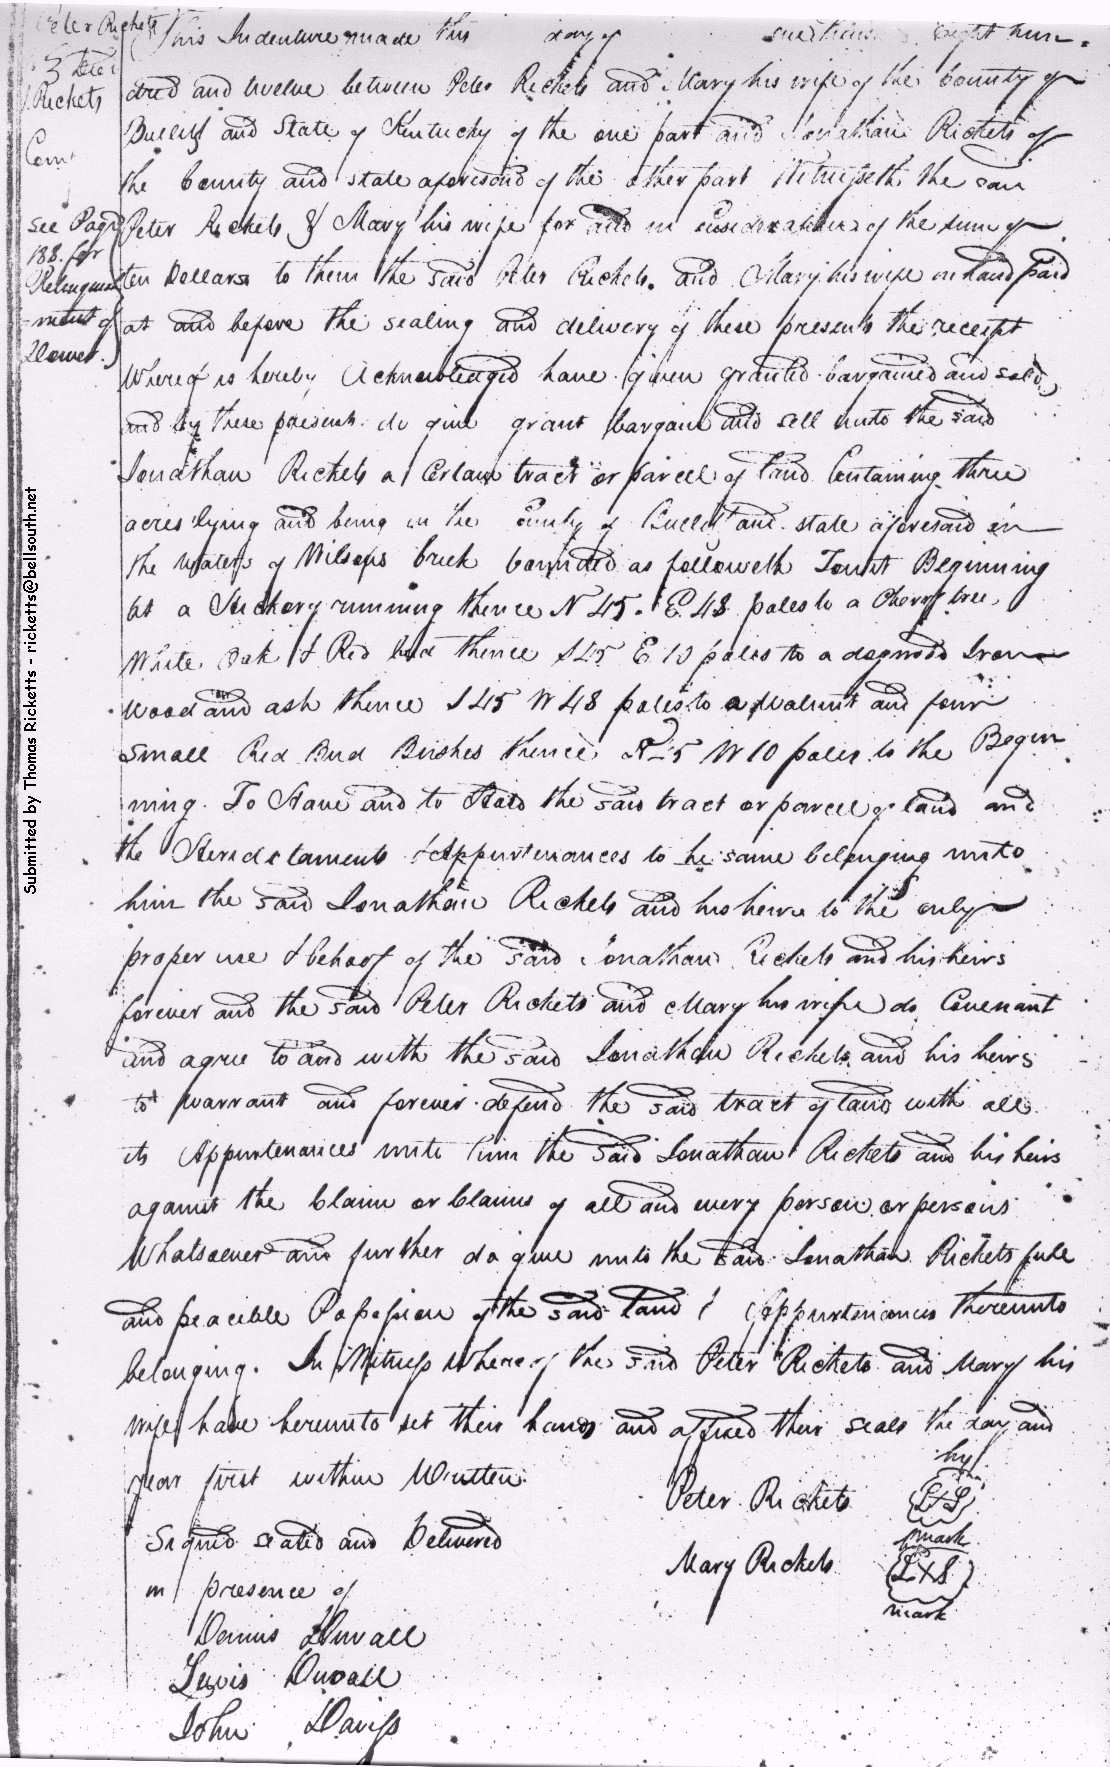 Peter Rickets
Deed
J. Rickets
see Page
188. for
Relinquish
-ment of
Dower.
This Indenture made this day of one thous eight hun-
dred and twelve between Peter Rickets and Mary his wife of the County of
Bullitt and State of Kentucky of the one part and Jonathan Rickets of
the County and state aforesaid of the other part Witnesseth the said
Peter Rickets & Mary his wife for and in Consideration of the sum of
ten Dollars to them the said Peter Rickets. and Mary his wife in hand paid
at and before the sealing and delivery of these presents the receipt
Whereof is hereby Acknowledged have given granted bargained and sold,
and by these presents do give grant bargain and sell unto the said
Jonathan Rickets a Certain tract or parcell of land Containing three
acres lying and being in the County of Bullitt and state aforesaid on
the waters of Wilsons Creek bounded as followeth Towit Beginning
at a Hickory running thence N 45. E 48 poles to a Cherry tree,
White Oak & Red bud thence S 45 E 10 poles to a dogwood Iron
wood and ash thence S 45 W 48 poles to a Walnut and four
small Red Bud Bushes thence N 45 W 10 poles to the Begin
ning. To Have and to Hold the said tract or parcel of land and
the Heredetaments & Appurtenances to he same belonging unto
him the said Jonathan Rickets and his heirs to the only
proper use & behoof of the said Jonathan Rickets and his heirs
forever and the said Peter Rickets and Mary his wife do Covenant
and agree to and with the said Jonathan Rickets and his heirs
to warrant and forever defend the said tract of land with all
its Appurtenances unto him the said Jonathan Rickets and his heirs
against the Claim or Claims of all and every person or persons
Whatsoever and further do give unto the said Jonathan Rickets full
and peacible Possession of the said land & Appurtenances thereunto
belonging. In Witness Whereof the said Peter Rickets and Mary his
wife have hereunto set their hands and affixed their seals the day and
year first within Written.
his
Peter Rickets LXS
mark
Signed sealed and Delivered
Mary Rickets LXS
mark
in presence of
Dennis Duvall
Lewis Duvall
John Daviss
Submitted by Thomas Ricketts - ricketts@bellsouth.net